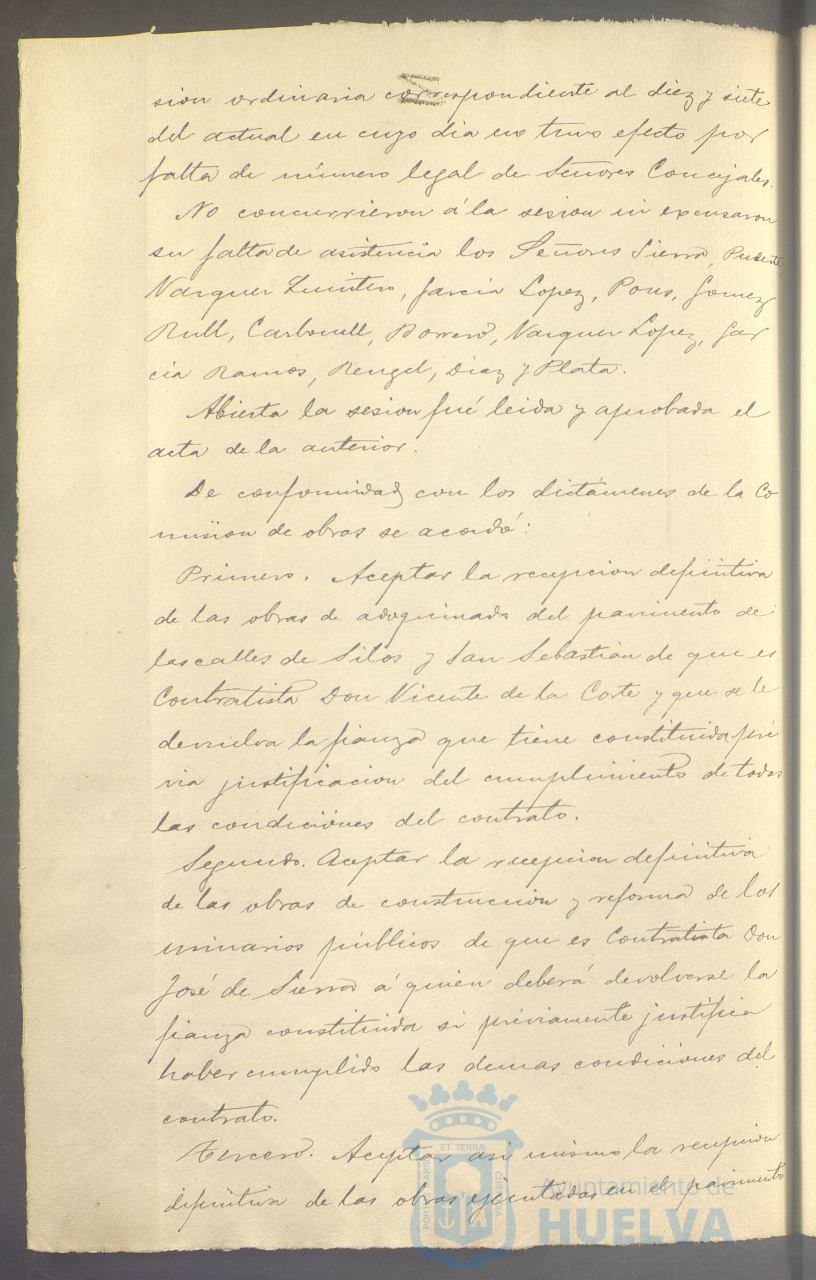 sion ordinaria correspondiente al diez y siete
del actual en cuyo dia no tuvo efecto por
falta de número legal de Señores Concejales.
No concurrieron á la sesion ni excusaron
su falta de asistencia los Señores Sierra,
Vazquez Quintero, Garcia Lopez, Pons, Gomez
Rull, Carbonell, Borrero, Vazquez Lopez, Gar
cia Ramos, Rengel, Diaz y Plata.
Abierta la sesion fué leida y aprobada el
acta de la anterior.
De conformidad con los dictámenes de la Co
mision de obras se acordó:
Primero. Aceptar la recepcion definitiva
de las obras de adoquinado del pavimento de
las calles de Silos y San Sebastián de que es
Contratista Don Vicente de la Corte y que se le
devuelva la fianza que tiene constituida pré
via justificacion del cumplimiento de todas
las condiciones del contrato.
Segundo. Aceptar la recepcion definitiva
de las obras de construccion y reforma de los
urinarios públicos de que es Contratista Don
José de Sierra á quien deberá devolverse la
fianza constituida si préviamente justifica
haber cumplido las demas condiciones del
contrato.
Tercero. Aceptar asi mismo la recepcion
difinitiva de las obras ejecutadas en el pavimento
ET TERRÆ
Ayuntamiento de
HUELVA